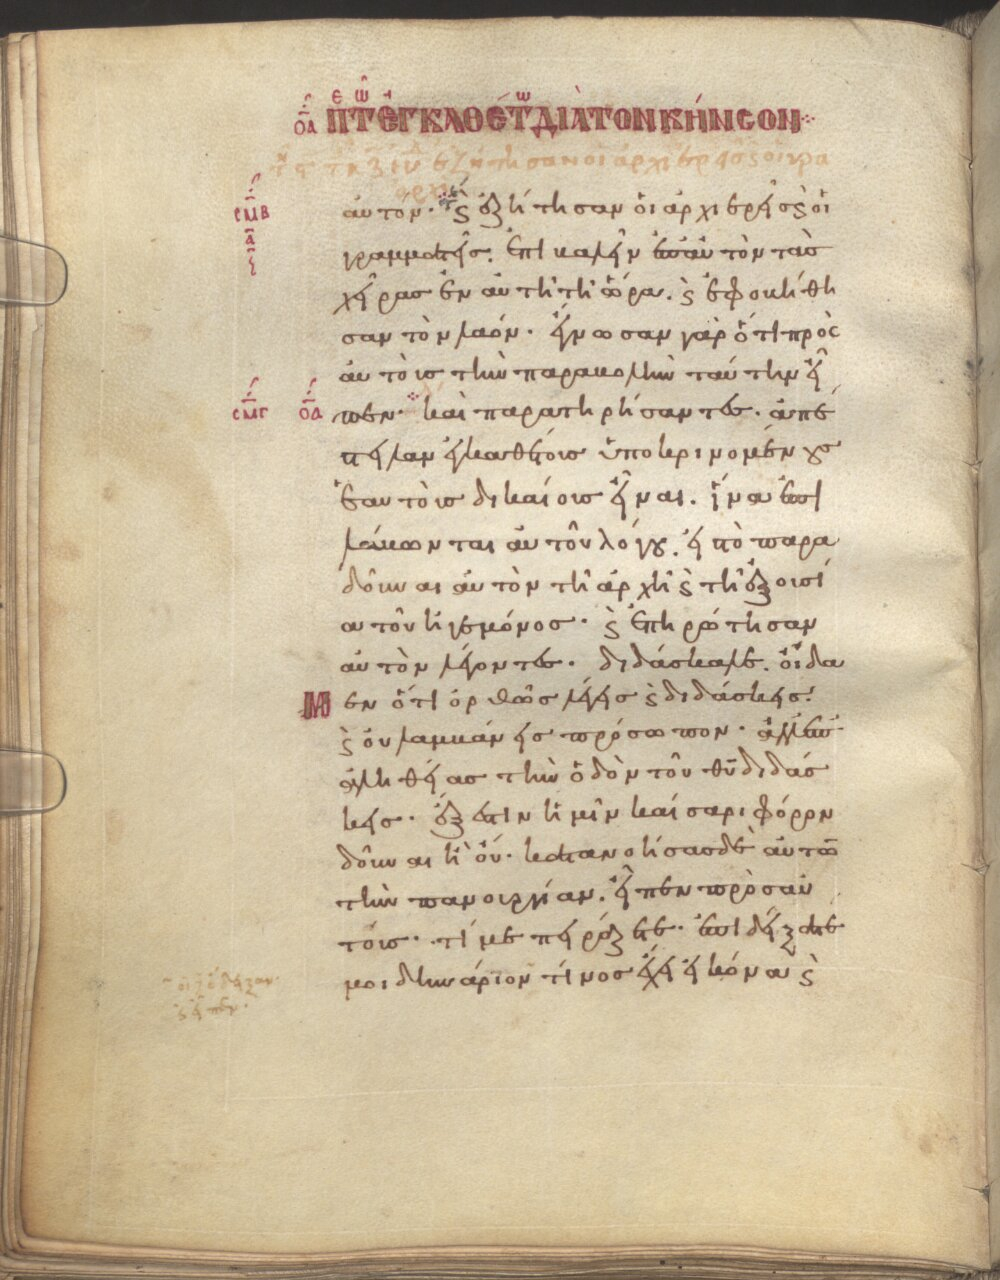 ο̅α̅ Π̅Τ̅ ΕΓΚΑΘΕΤ̅ ΔΙᾺ ΤΟΝ ΚΉΝΣΟΝ
ἐζήτησαν οἱ ἀρχιερεῖς ϛ οἱ γρα
σμβ αὐτόν· ϛ ἐζήτησαν οἱ ἀρχιερεῖς ϛ οἱ
γραμματεῖς. ἐπιβαλεῖν ἐπ αὐτὸν τὰς
χεῖρας ἐν αὐτῆ τῆ ὥρα. ϛ ἐφοβήθη
σαν τὸν λαόν· ἔγνωσαν γὰρ ὅτι πρὸς
αὐτοὺς τὴν παραβολὴν ταύτην εἶ
σμγ ο̅α̅ πεν· καὶ παρατηρήσαντες· ἀπέ
στειλαν ἐγκαθέτους ὑποκρινομένους
ἑαυτοὺς δικαίους εἶναι. ἵνα ἐπι
λάβωνται αὐτοῦ λόγου. εἰς τὸ παρα
δοῦναι αὐτὸν τῆ ἀρχῆ ϛ τῆ ἐξουσί
α τοῦ ἡγεμόνος· ϛ ἐπηρώτησαν
αὐτὸν λέγοντες· διδάσκαλε. οἴδα
Μ εν ὅτι ὀρθῶς λέγεις ϛ διδάσκεις.
ϛ οὐ λαμβάνεις πρόσωπον· ἀλλ ἐπ
ἀληθείας τὴν ὁδὸν τοῦ θ̅υ̅ διδάσ
κεις· ἔξεστιν ἡμῖν καίσαρι φόρον
δοῦναι ἢ οὔ· κατανοήσας δὲ αὐτῶν
τὴν πανουργίαν. εἶπεν πρὸς αὐ
τούς· τί με πειράζετε· ἐπιδείξατε
μοι δηνάριον τίνος ἔχει εἰκόνα ϛ
οἱ δὲ ἔδειξαν
ϛ εἶπεν·